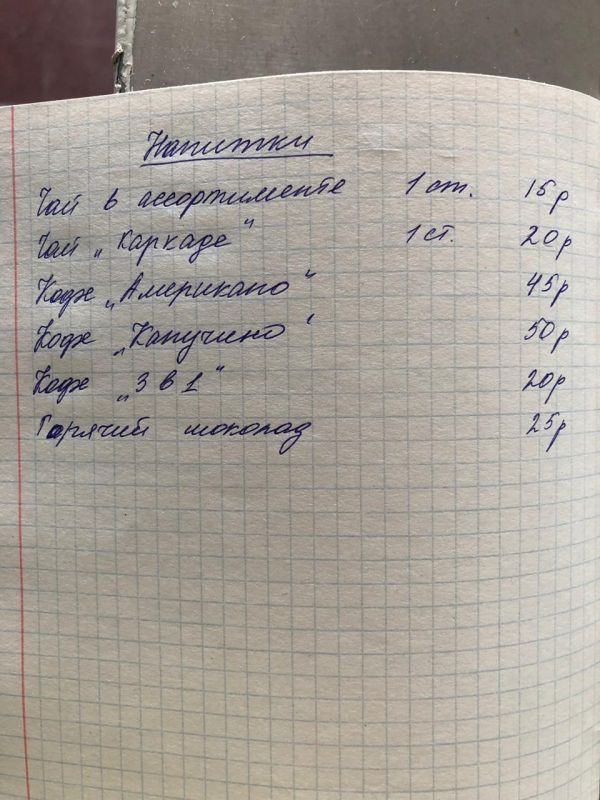 Напитки
Чай в ассортименте 1 ст. 15р
Чай „Каркаде" 1 ст. 20р
Кофе „Американо" 45р
Кофе „Капучино" 50р
Кофе „3 в 1" 20р
Горячий шоколад 25р